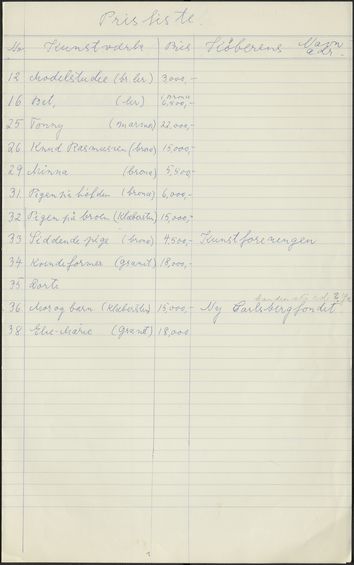 Prisliste.
Nr Kunstværk Pris Köberens Navn adr.
12 Modelstudie (br. ler) 3000,-
16 Bet, (ler) 6,500,-
25 Tonny (marmor) 22,000,-
26 Knud Rasmussen (bronce) 15,000,-
29 Minna (bronce) 5,500,-
31 Pigen på hofden (bronce) 6,000,-
32 Pigen på broen (Klebersten) 15,000,-
33 Siddende pige (bronce) 4,500,- Kunstforeningen
34 Kvindeformer (granit) 18,000,-
35 Dorte
36 Mor og barn (Klebersten) 15,000,- Ny Carlsbergfondet
38 Else-Marie (granit) 18,000